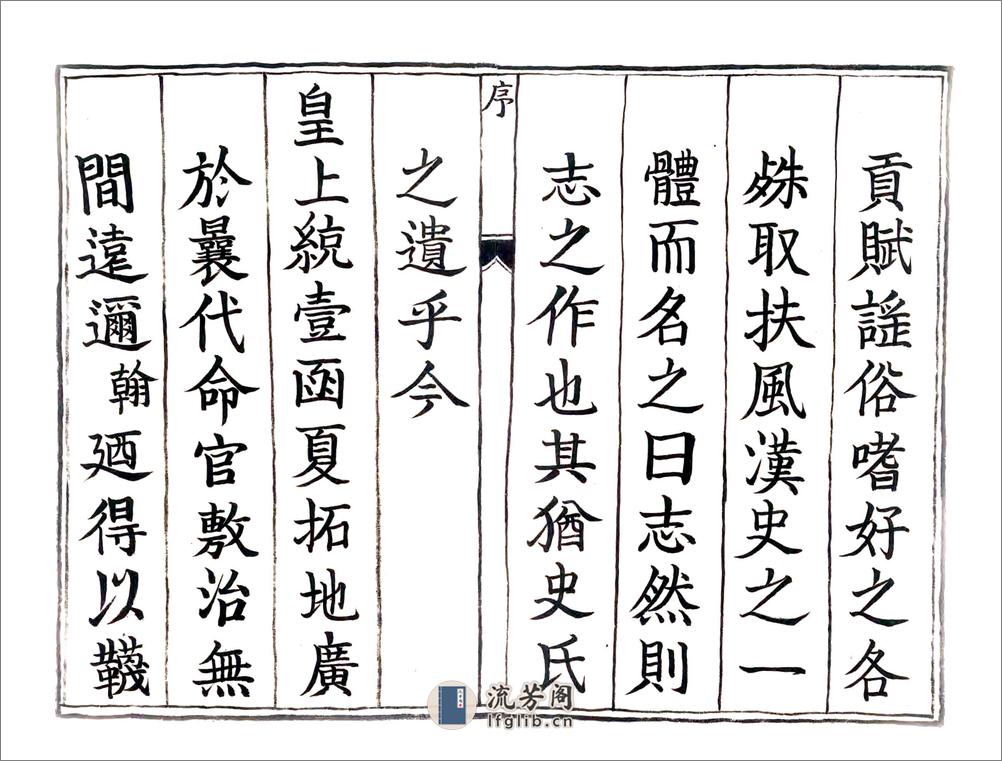 貢賦謡俗嗜好之各
殊取扶風漢史之一
體而名之曰志然則
志之作也其猶史氏
序
之遺乎今
皇上統壹函夏拓地廣
於曩代命官敷治無
間遠邇翰廼得以韈
流芳阁
lfglib.cn